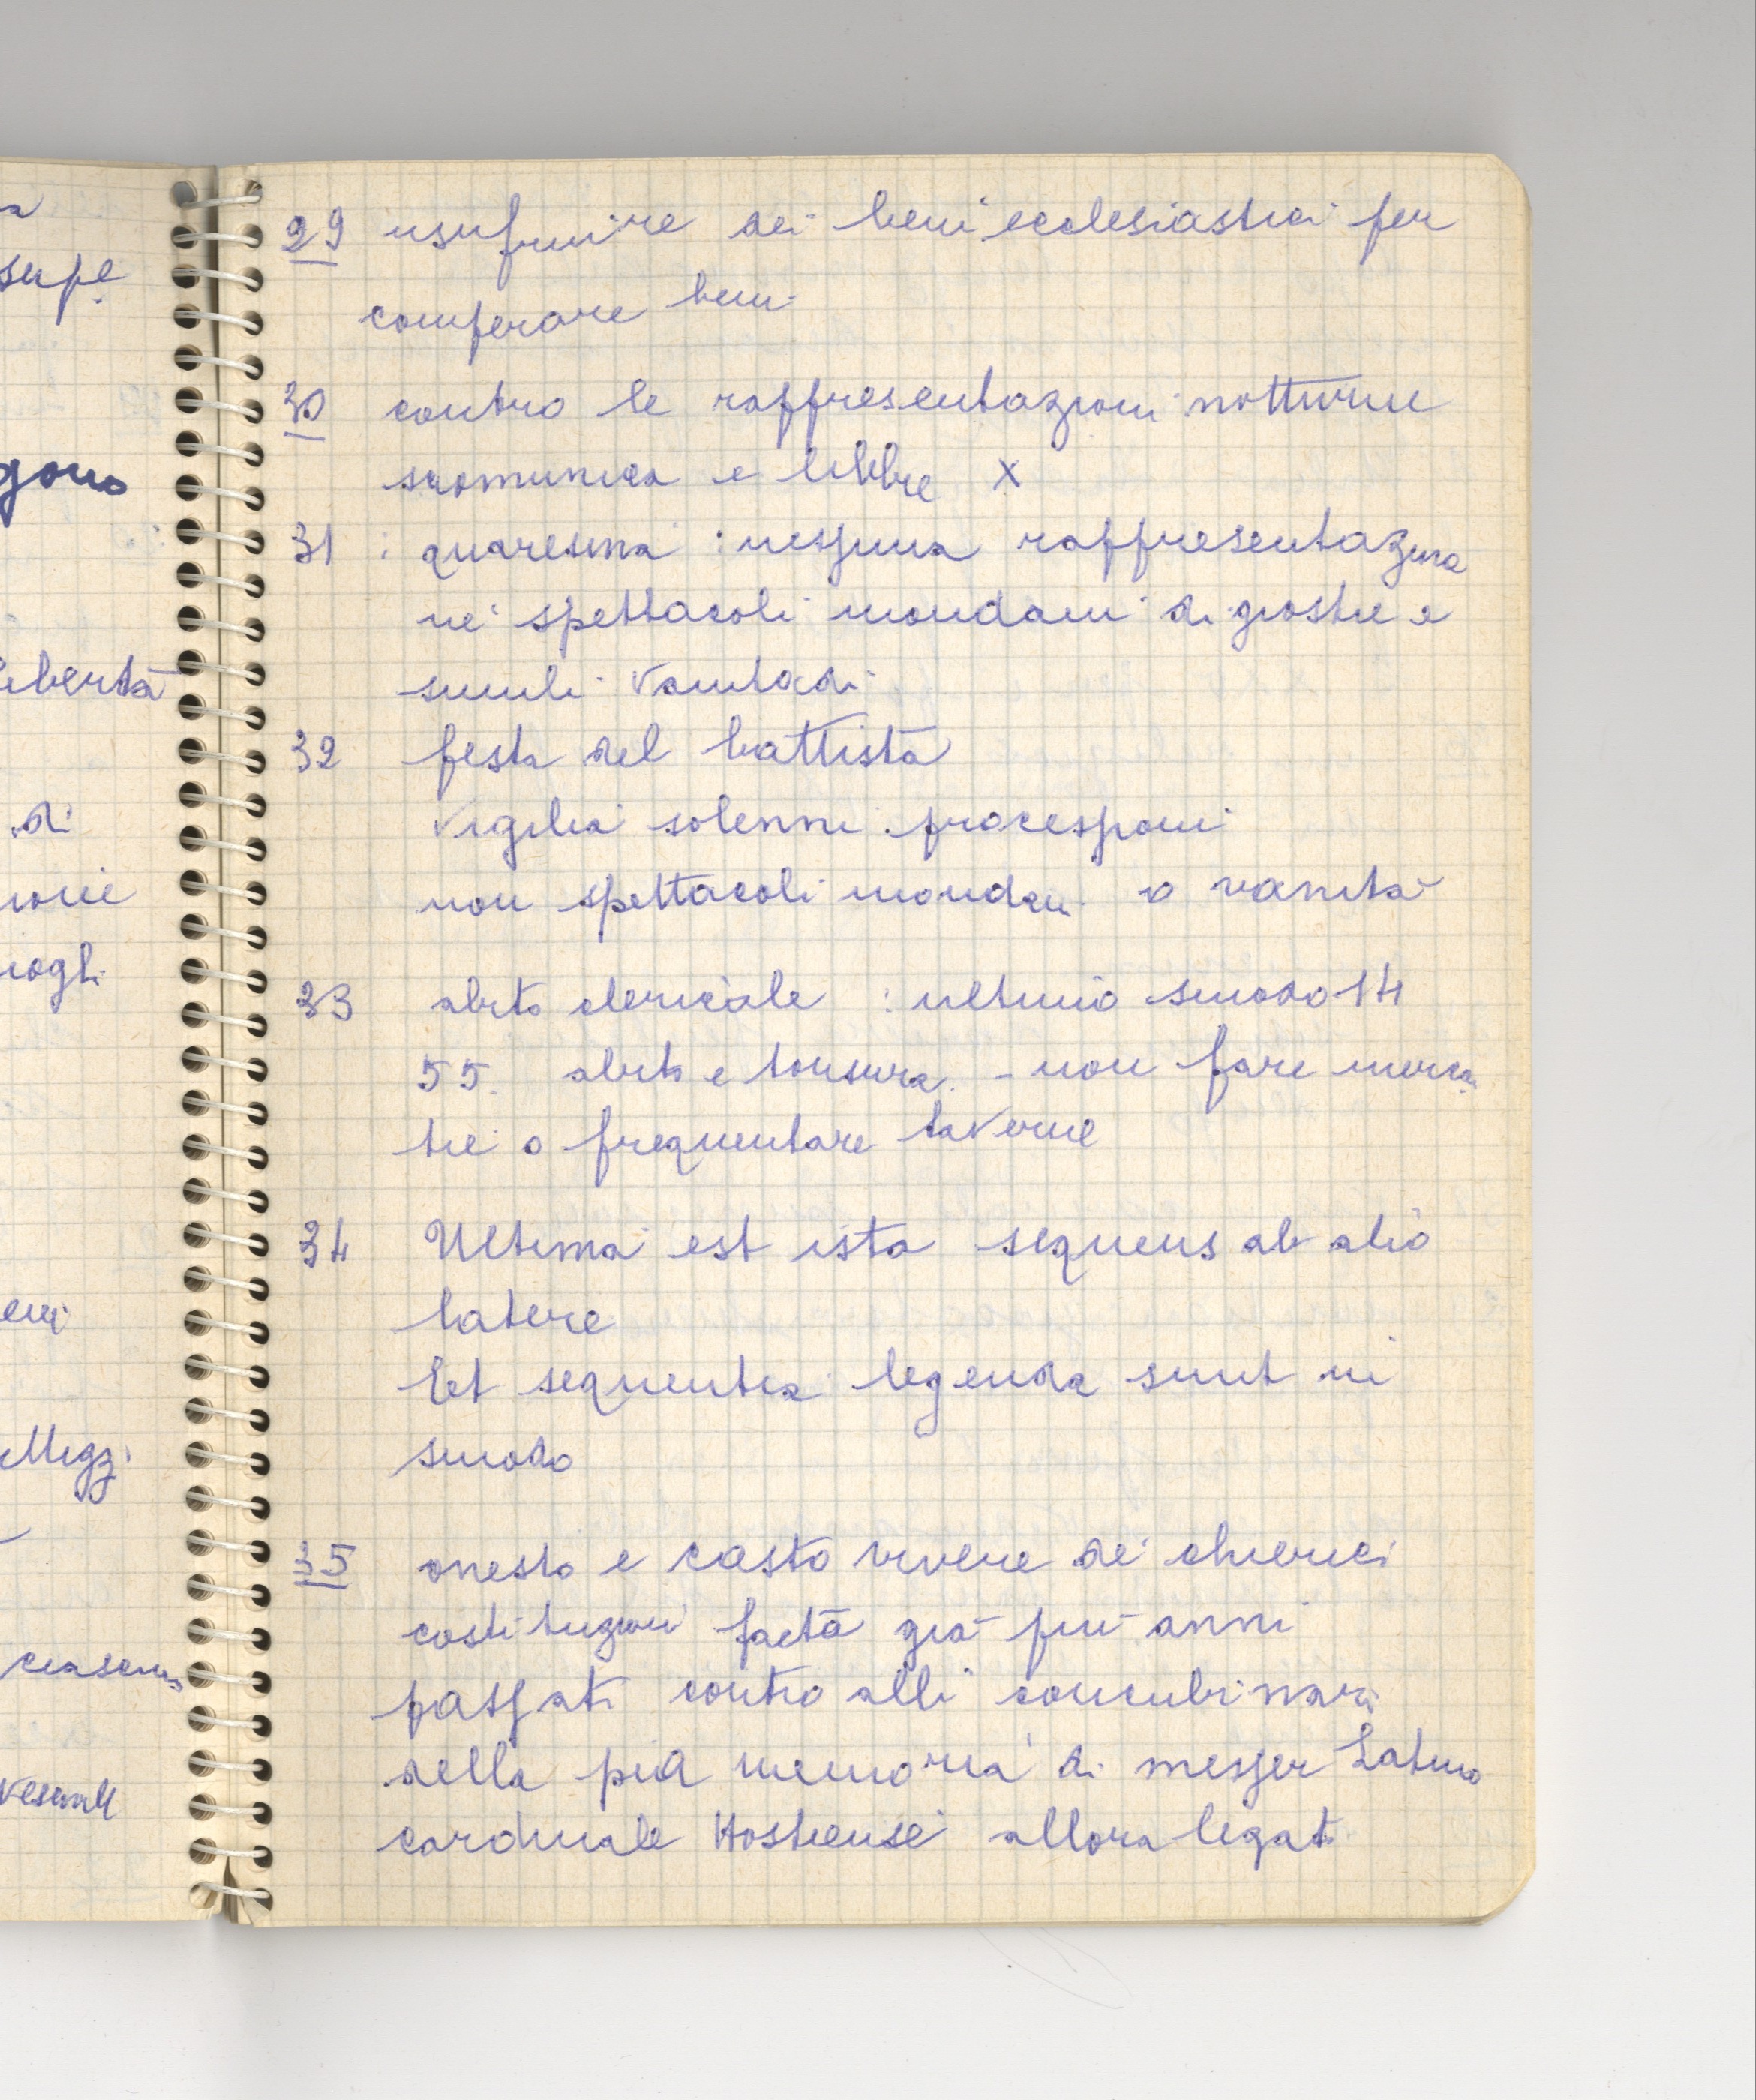 29 usufruire dei beni ecclesiastici per
comperare beni
30 contro le rappresentazioni notturne
scomunica e libbre X
31 : quaresima : nessuna rappresentazione
nè spettacoli mondani di giostre e
simili vanitadi
32 festa del battista
vigilia solenni processioni
non spettacoli mondani o vanità
33 abito clericale : ultimo sinodo 14
55. abito e tonsura. - non fare merca
tie o frequentare taverne
34 Ultima est ista sequens ab alio
latere
Et sequentia legenda sunt in
sinodo
35 onesto e casto vivere dei chierici
costituzioni facta già più anni
passati contro alli concubinari
della pia memoria di messer Latino
cardinale Hostiense allora legato
supe
gono
libertà
di
mogli
ciascuno